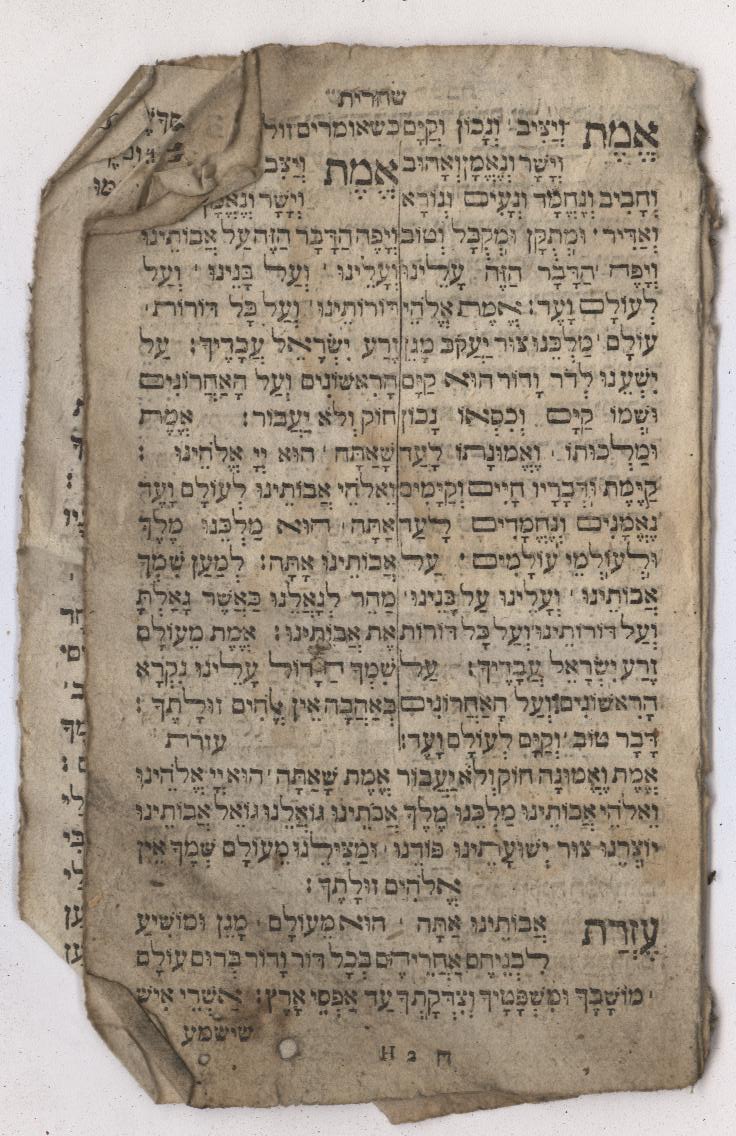 שחרית
אֱמֶת וְיַצִּיב · וְנָכוֹן וְקַיָּם
וְיָשָׁר וְנֶאֱמָן וְאָהוּב
וְחָבִיב וְנֶחְמָד וְנָעִים וְנוֹרָא
וְאַדִּיר · וּמְתֻקָּן וּמְקֻבָּל וְטוֹב
וְיָפֶה הַדָּבָר הַזֶּה עָלֵינוּ
לְעוֹלָם וָעֶד : אֱמֶת אֱלֹהֵי
עוֹלָם מַלְכֵּנוּ צוּר יַעֲקֹב מָגֵן
יִשְׁעֵנוּ לְדֹר וָדוֹר הוּא קַיָּם
וּשְׁמוֹ קַיָּם וְכִסְאוֹ נָכוֹן
וּמַלְכוּתוֹ וֶאֱמוּנָתוֹ לָעַד
קַיֶּמֶת וּדְבָרָיו חָיִים וְקַיָּמִים
נֶאֱמָנִים וְנֶחֱמָדִים לָעַד
וּלְעוֹלְמֵי עוֹלָמִים · עַל
אֲבוֹתֵינוּ · וְעָלֵינוּ עַל בָּנֵינוּ ·
וְעַל דּוֹרוֹתֵינוּ וְעַל כָּל דּוֹרוֹת
זֶרַע יִשְׂרָאֵל עֲבָדֶיךָ : עַל
הָרִאשׁוֹנִים וְעַל הָאַחֲרוֹנִים
דָּבָר טוֹב וְקַיָּם לְעוֹלָם וָעֶד :
כשאומרים זול
אֱמֶת וְיַצִּב
וְיָשָׁר וְנֶאֱמָן
וְיָפֶה הַדָּבָר הַזֶּה עַל אֲבוֹתֵינוּ
וְעָלֵינוּ · וְעַל בָּנֵינוּ · וְעַל
דּוֹרוֹתֵינוּ · וְעַל כָּל דּוֹרוֹת ·
זֶרַע יִשְׂרָאֵל עֲבָדֶיךָ : עַל
הָרִאשׁוֹנִים וְעַל הָאַחֲרוֹנִים
חוֹק וְלֹא יַעֲבוֹר : אֱמֶת
שָׁאַתָּה · הוּא יְיָ אֱלֹהֵינוּ :
וֵאלֹהֵי אֲבוֹתֵינוּ לְעוֹלָם וָעֶד
אַתָּה הוּא מַלְכֵּנוּ מֶלֶךְ
אֲבוֹתֵינוּ אָתָּה : לְמַעַן שִׁמְךָ
מַהֵר לְגָאֳלֵנוּ כַּאֲשֶׁר גָּאַלְתָּ
אֶת אֲבוֹתֵינוּ : אֱמֶת מֵעוֹלָם
שִׁמְךָ הַגָּדוֹל עָלֵינוּ נִקְרָא
בְּאַהֲבָה אֵין אֱלֹהִים זוּלָתֶךָ :
עזרת
אֱמֶת וֶאֱמוּנָה חוֹק וְלֹא יַעֲבוֹר אֱמֶת שָׁאַתָּה הוּא יְיָ אֱלֹהֵינוּ
וֵאלֹהֵי אֲבוֹתֵינוּ מַלְכֵּנוּ מֶלֶךְ אֲבֹתֵינוּ גּוֹאֲלֵנוּ גּוֹאֵל אֲבוֹתֵינוּ
יוֹצְרֵנוּ צוּר יְשׁוּעָתֵינוּ פּוֹדֵנוּ וּמַצִּילֵנוּ מֵעוֹלָם שְׁמֶךָ אֵין
אֱלֹהִים זוּלָתֶךָ :
עֶזְרַת אֲבוֹתֵינוּ אַתָּה · הוּא מֵעוֹלָם · מָגֵן וּמוֹשִׁיעַ
לִבְנֵיהֶם אַחֲרֵיהֶם בְּכָל דּוֹר וָדוֹר בְּרוּם עוֹלָם
מוֹשָׁבֶךָ וּמִשְׁפָּטֶיךָ וְצִדְקָתְךָ עַד אַפְסֵי אָרֶץ : אַשְׁרֵי אִישׁ
שישמע
ח 2 H